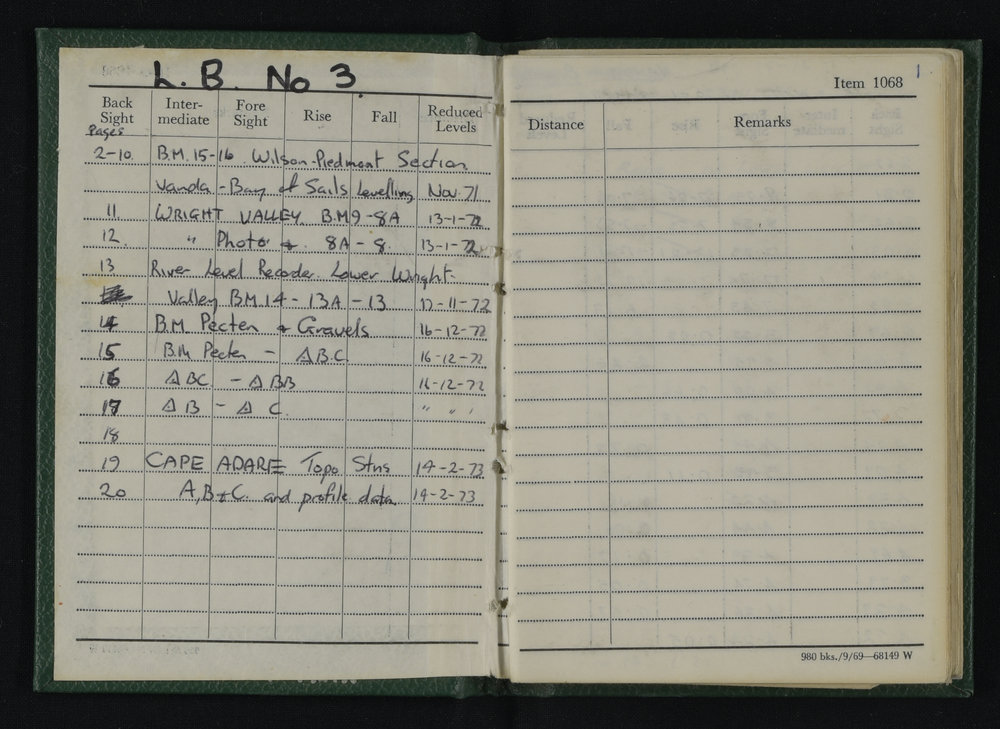 L. B. No 3.
Back Sight Inter-mediate Fore Sight Rise Fall Reduced Levels
Pages
2-10 B.M. 15-16 Wilson-Piedmont Section
Vanda - Bay of Sails Levelling Nov. 71
11 WRIGHT VALLEY B.M 9 - 8A 13-1-72
12 " Photo 8A - 8 13-1-72
13 River Level Recorder. Lower Wright.
Valley BM 14 - 13A - 13 13-11-72
14 B.M. Pecten & Gravels 16-12-72
15 B.M. Pecten - △BC 16-12-72
16 △BC - △BB 16-12-72
17 △B - △ C. " " "
18
19 CAPE ADARE Topo Stns 14-2-73
20 A, B & C. and profile data 14-2-73
1
Item 1068
Distance Remarks
980 bks./9/69—68149 W